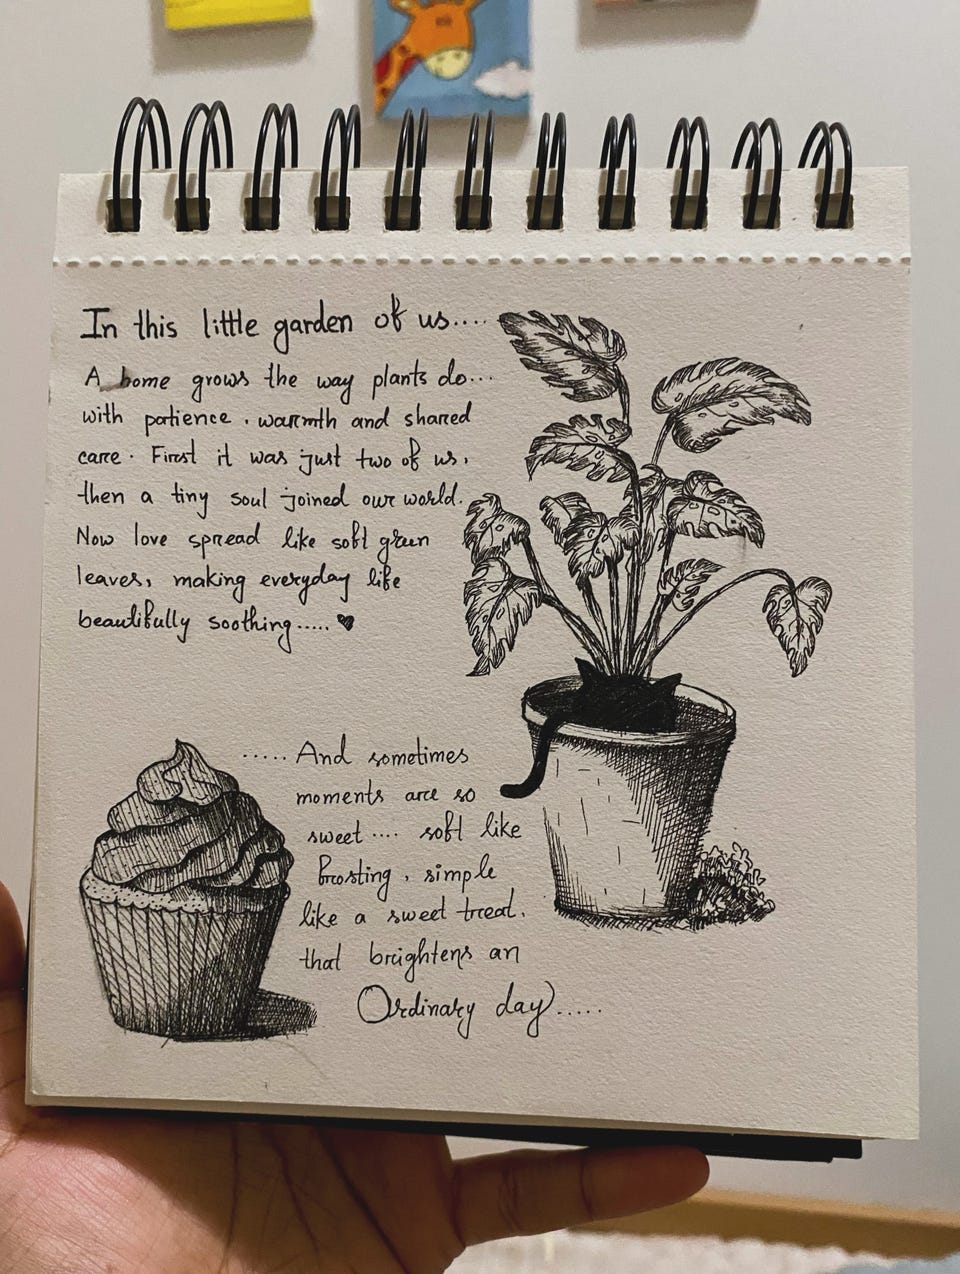 In this little garden of us....
A home grows the way plants do...
with patience, warmth and shared
care. First it was just two of us,
then a tiny soul joined our world.
Now love spread like soft green
leaves, making everyday life
beautifully soothing..... ♥
..... And sometimes
moments are so
sweet .... soft like
frosting, simple
like a sweet treat,
that brightens an
Ordinary day.....